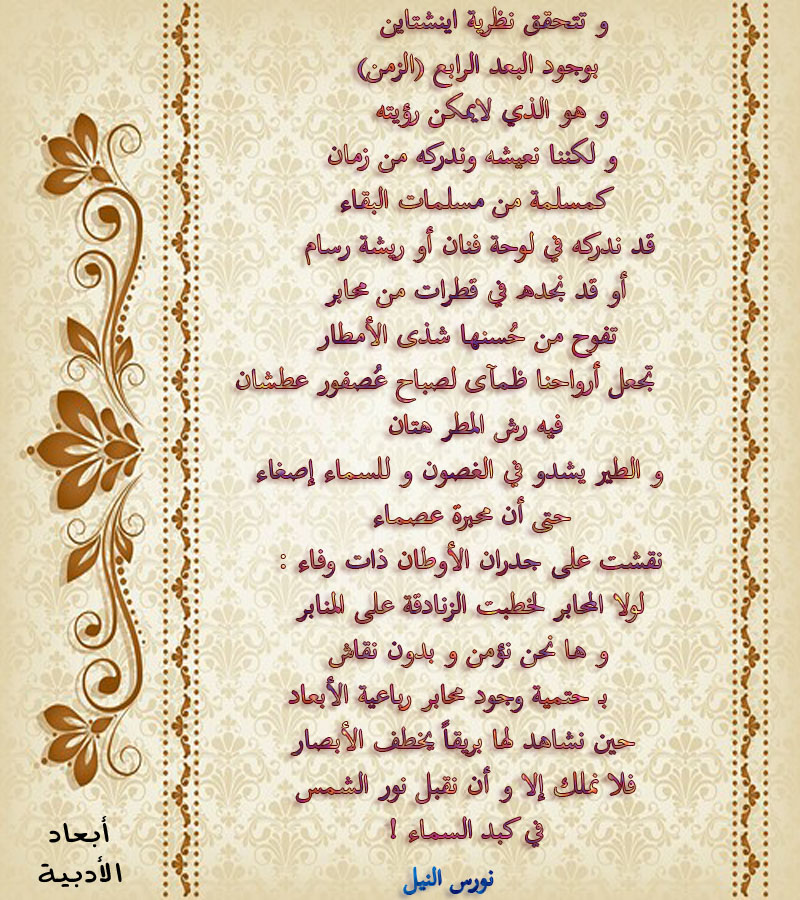 و تتحقق نظرية اينشتاين
بوجود البعد الرابع (الزمن)
و هو الذي لايمكن رؤيته
و لكننا نعيشه وندركه من زمان
كمسلمة من مسلمات البقاء
قد ندركه في لوحة فنان أو ريشة رسام
أو قد نجده في قطرات من محابر
تفوح من حُسنها شذى الأمطار
تجعل أرواحنا ظمآى لصباح عُصفور عطشان
فيه رش المطر هتان
و الطير يشدو في الغصون و للسماء إصغاء
حتى أن محبرة عصماء
نقشت على جدران الأوطان ذات وفاء :
لولا المحابر لخطبت الزنادقة على المنابر
و ها نحن نؤمن و بدون نقاش
بـ حتمية وجود محابر رباعية الأبعاد
حين نشاهد لها بريقاً يخطف الأبصار
فلا نملك إلا و أن نقبل نور الشمس
في كبد السماء !
نورس النيل
أبعاد
الأدبية